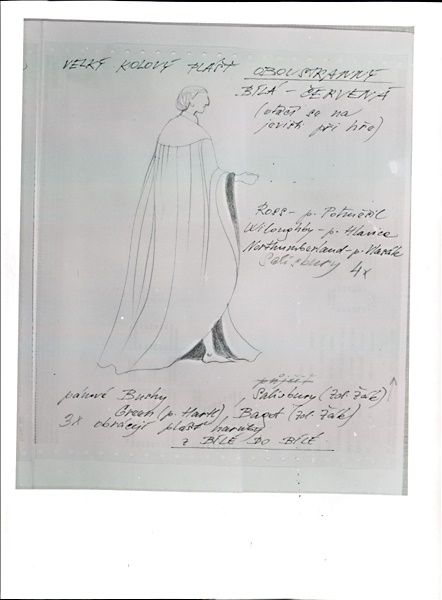 VELKÝ KOLOVÝ PLÁŠŤ OBOUSTRANNÝ
BÍLÁ - ČERVENÁ
(otáčí se na
jevišti při hře)
Ross - p. Potměšil
Willoughby - p. Hlavica
Northumberland - p. Vlasák
Salisbury 4x
pánové Bushy Salisbury (Zdl. Žák)
Green (p. Hartl), Bagot (Zdl. Žák)
3x obrácejí plášť
Z BÍLÉ DO BÍLÉ